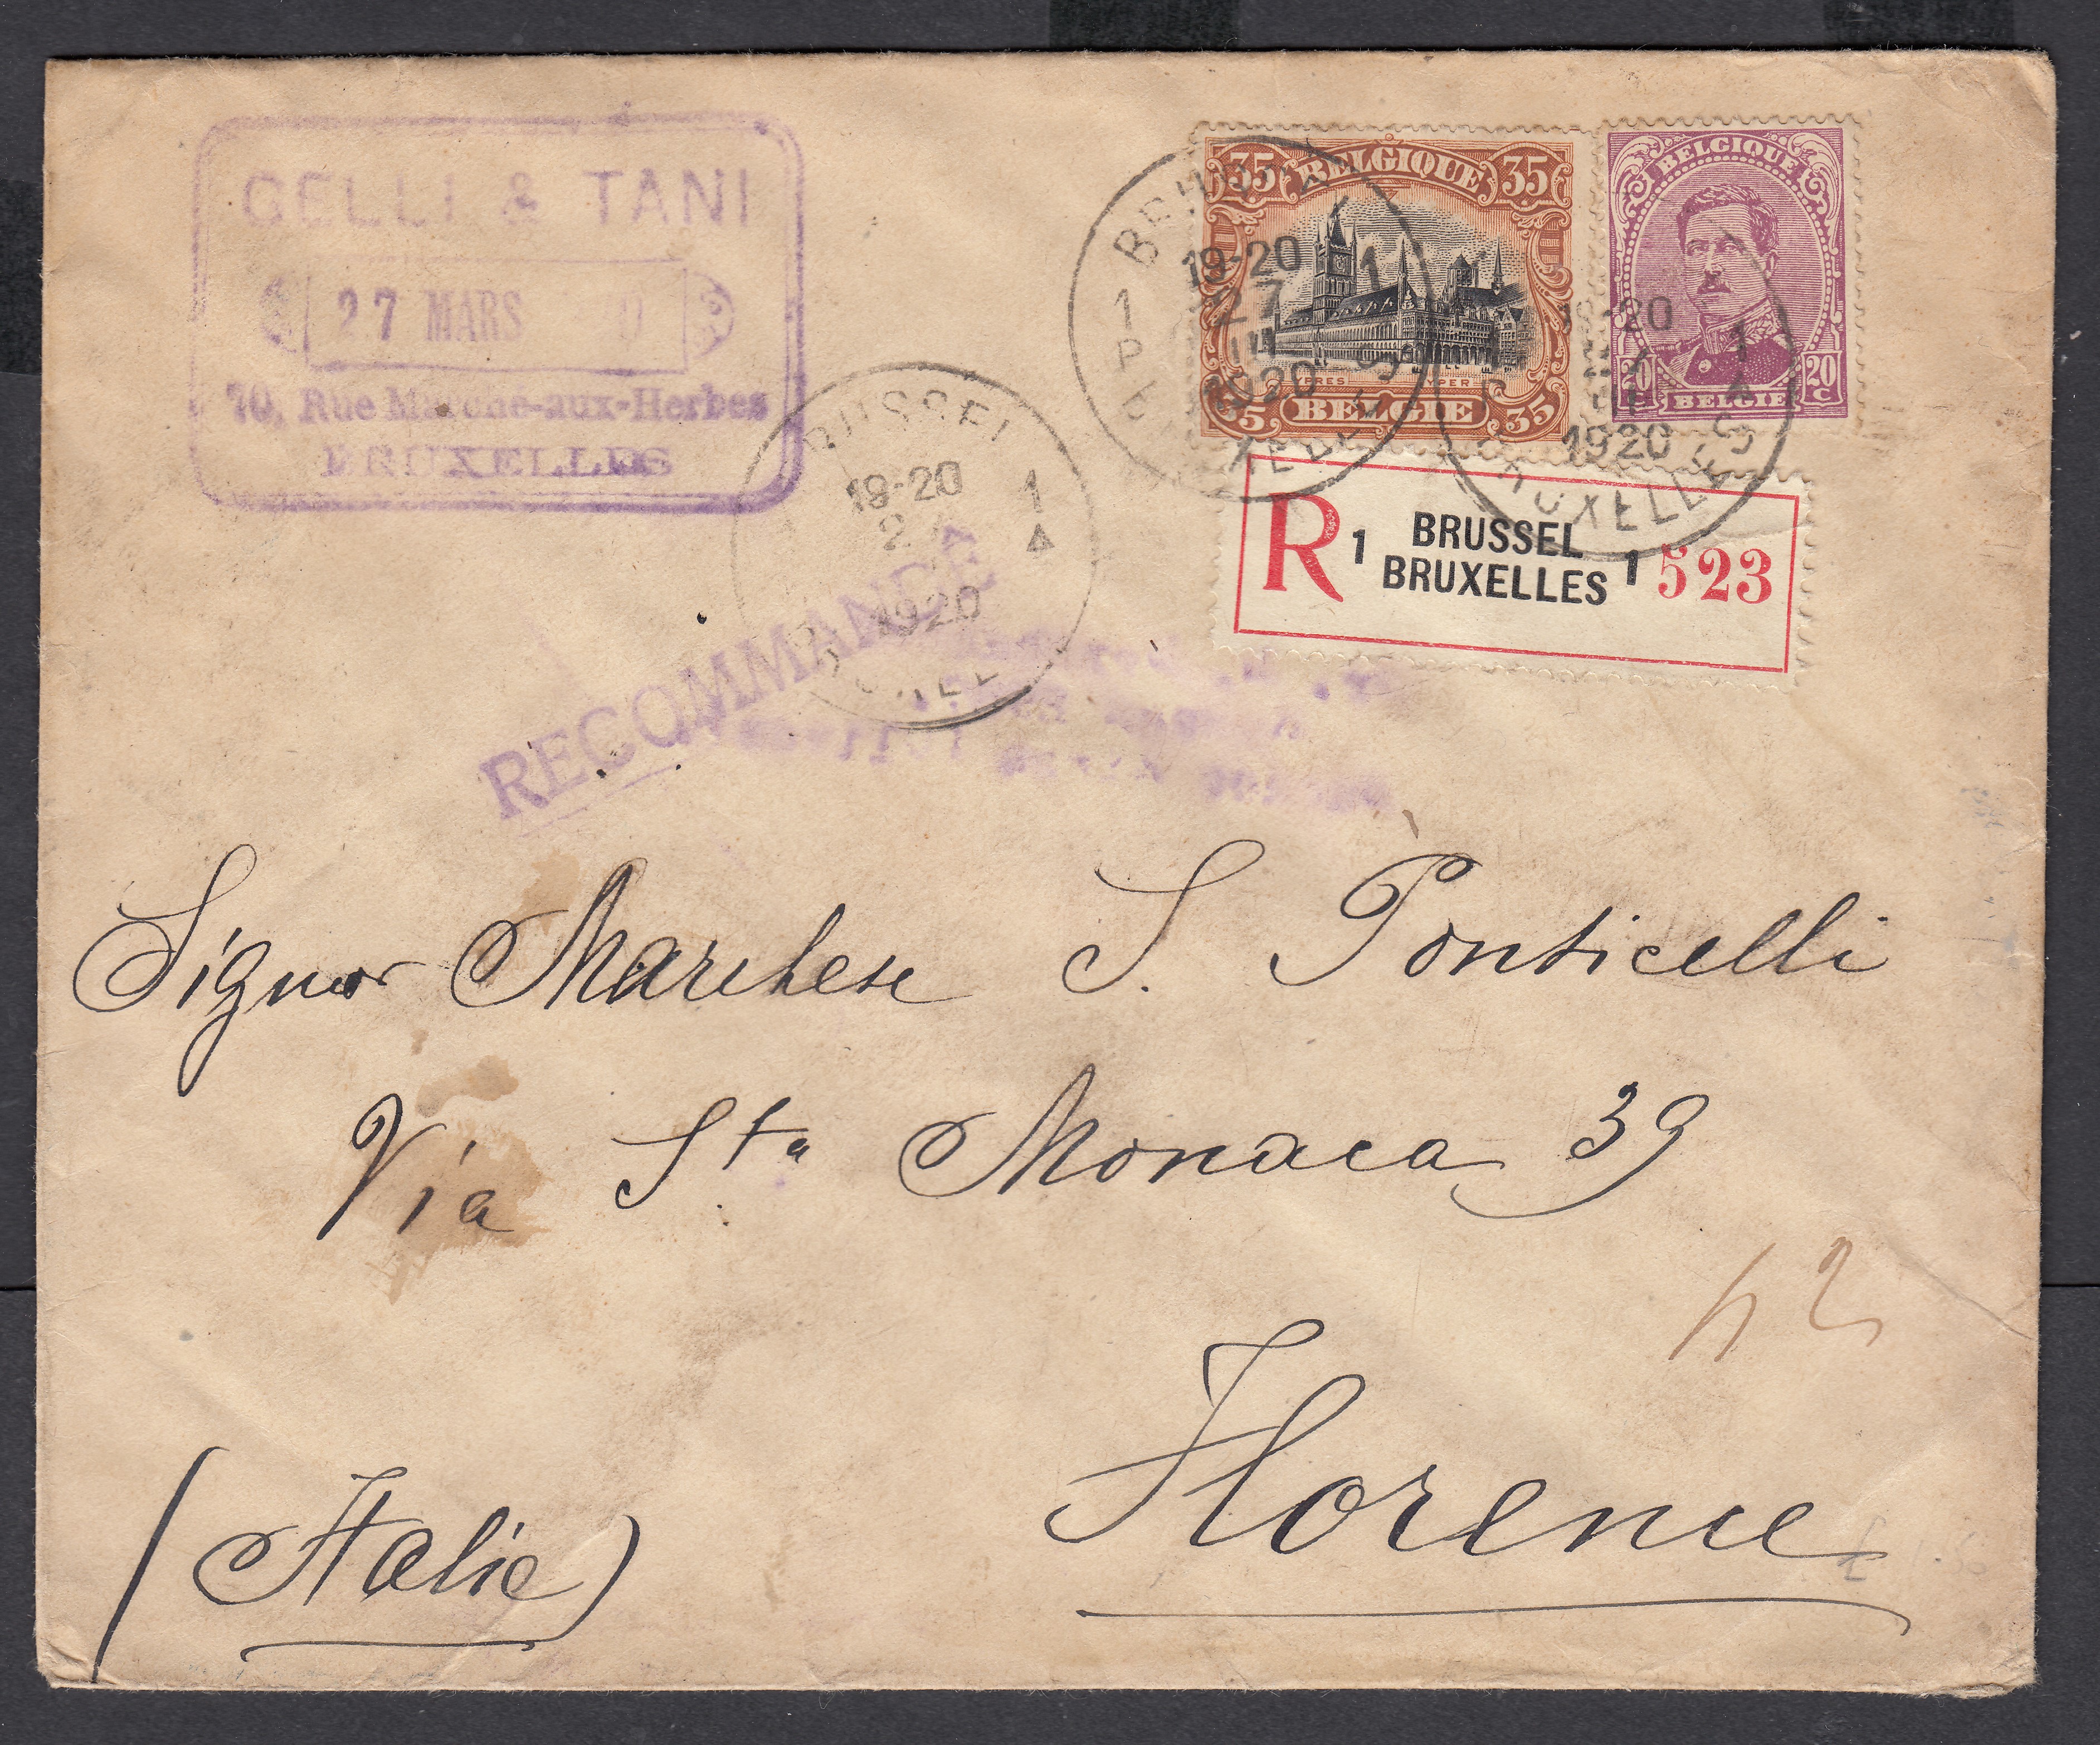 GELLI & TANI
27 MARS
70, Rue Marché-aux-Herbes
BRUXELLES
35 BELGIQUE 35
YPRES YPER
35 BELGIE 35
BELGIQUE
20 C 20 C
BELGIE
19-20
27
III
1920
1
19-20
1920
1
BRUSSEL
19-20
1920
1
R 1 BRUSSEL
BRUXELLES 1 523
RECOMMANDÉ
Signor Marchese S. Ponticelli
Via Sta Monaca 39
42
Florence
(Italie)